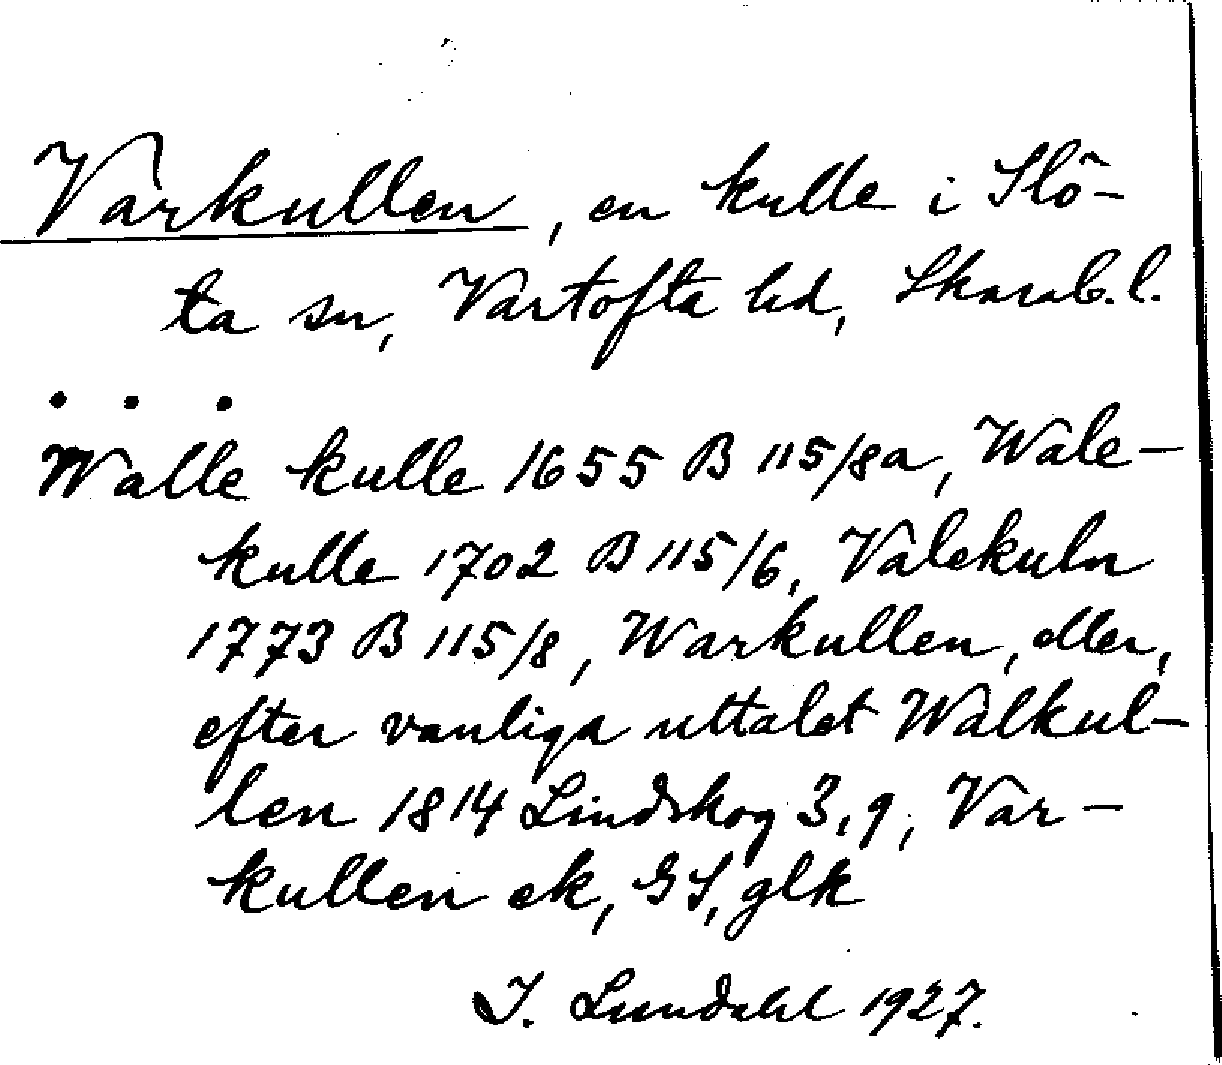 Varkullen, en kulle i Slö-
ta sn, Vartofta hd, Skarab. l.
. . .
Walle kulle 1655 B 115/8a, Wale-
kulle 1702 B 115/6, Valekuln
1773 B 115/8, Warkullen, eller,
efter vanliga uttalet Walkul-
len 1814 Lindskog 3,9, Var-
kullen ek, GS, glk
I. Lundahl 1927.